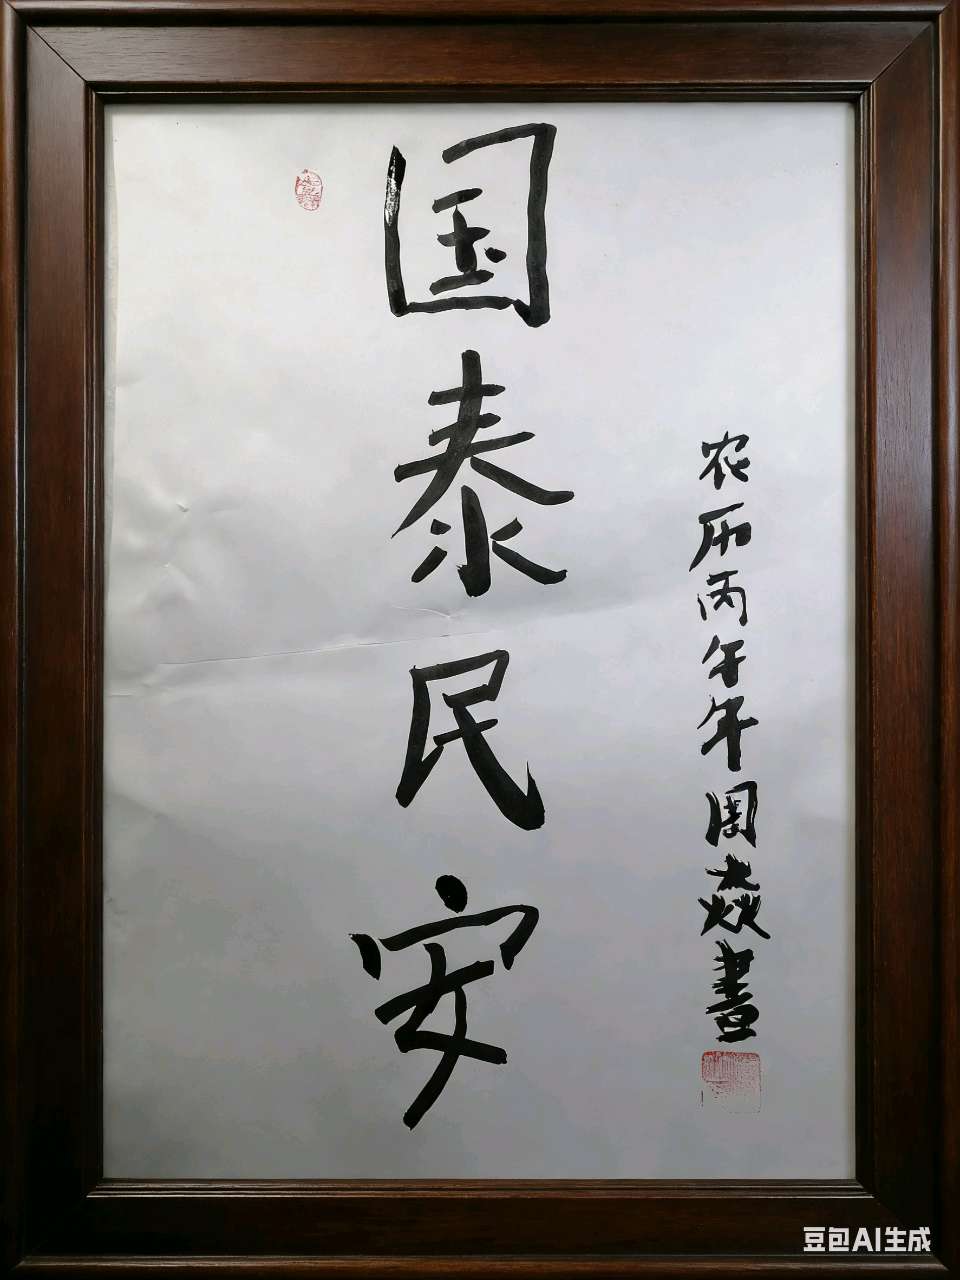 国泰民安
农历丙午年周焱書
豆包AI生成